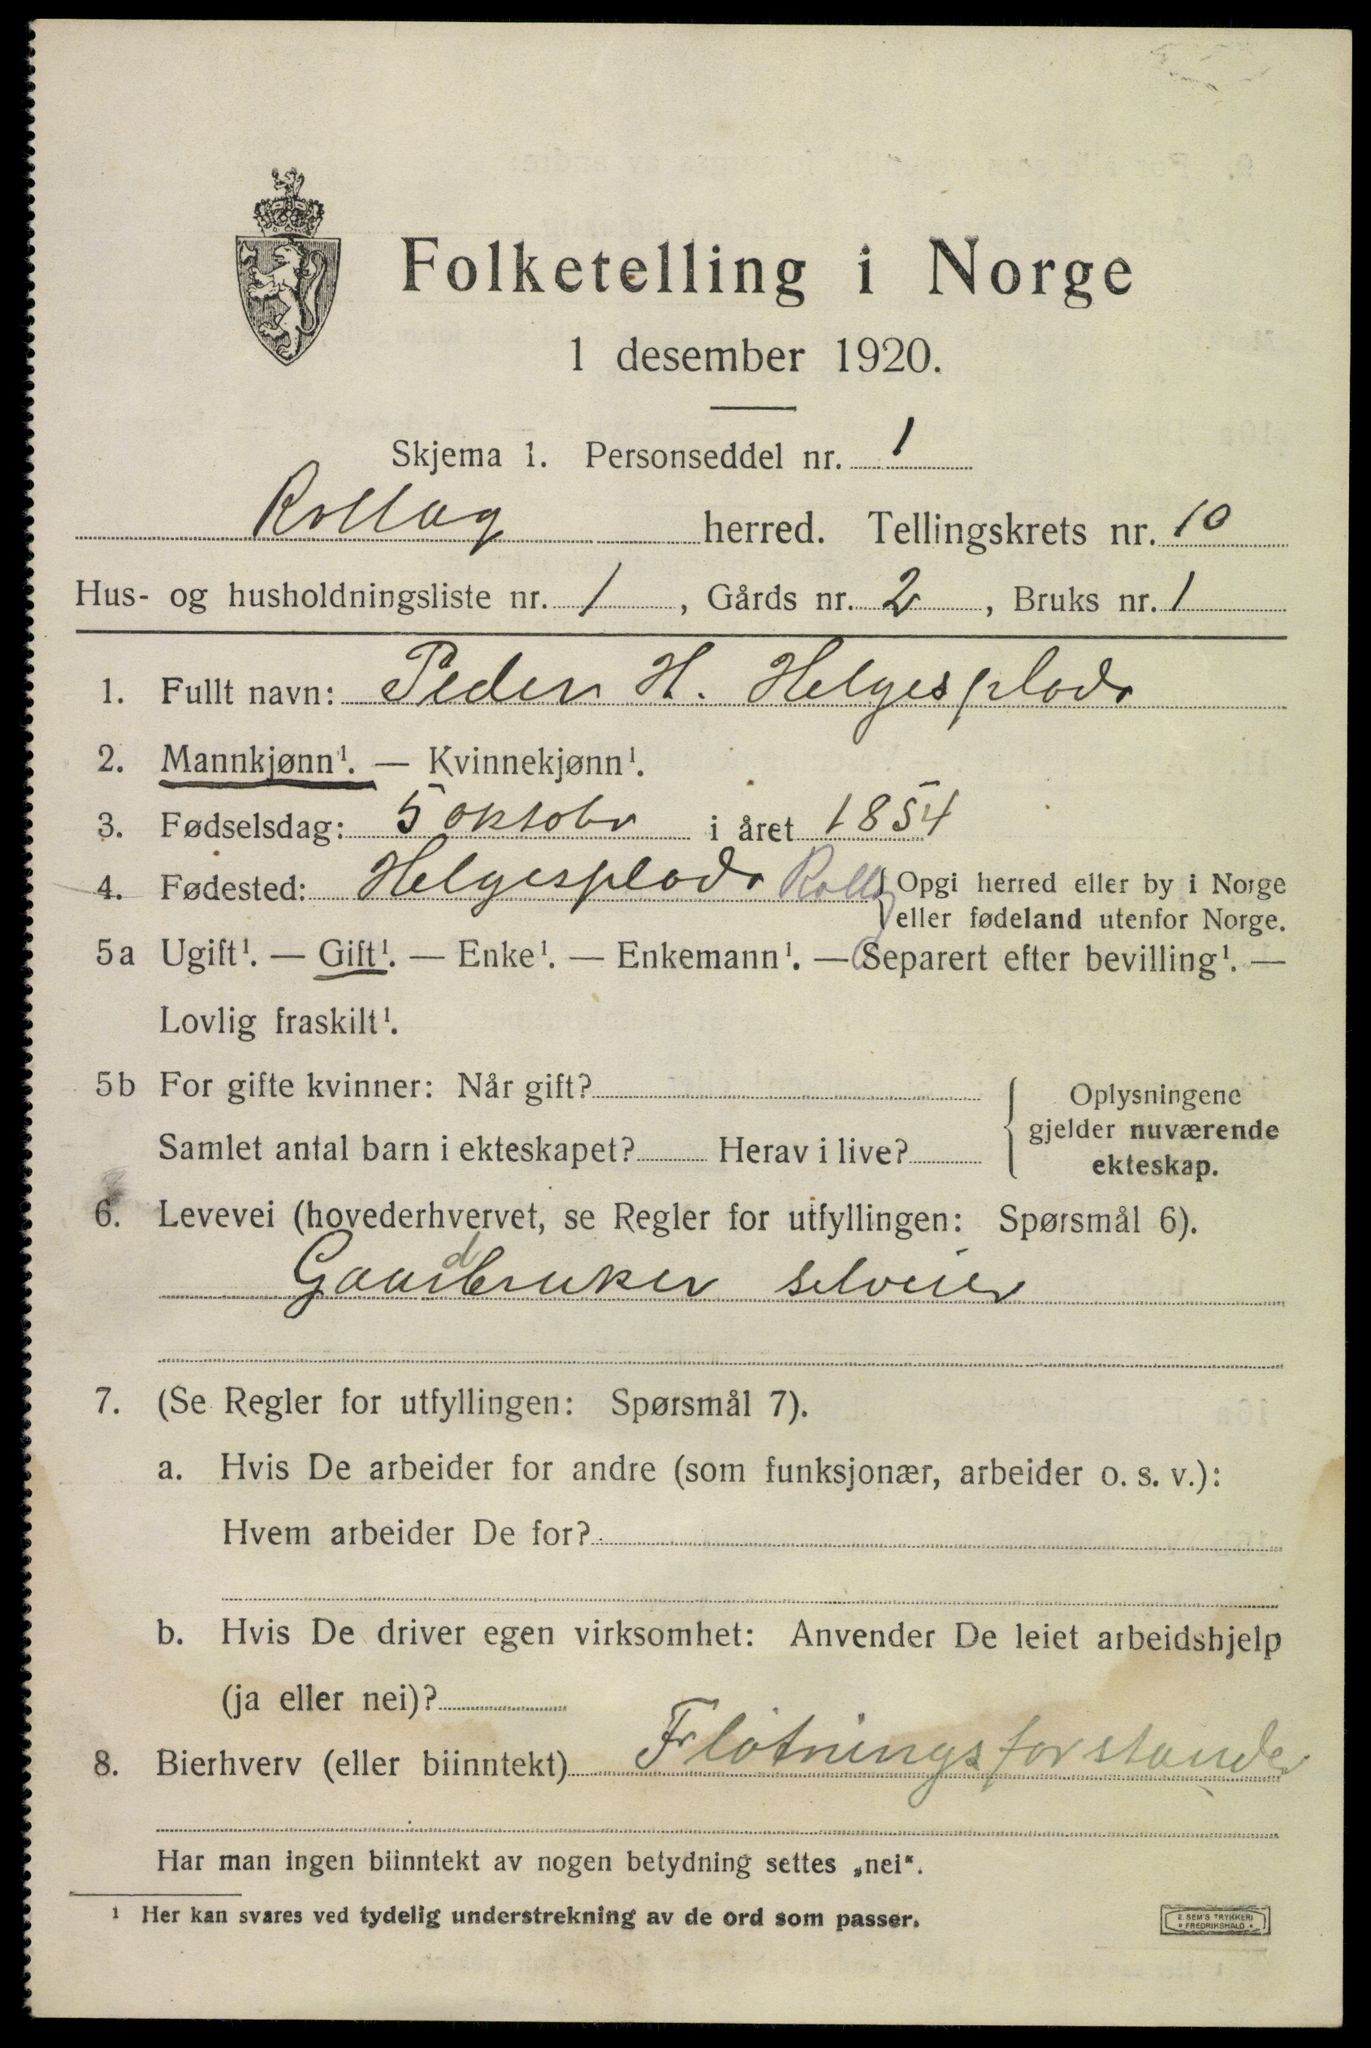 Folketelling i Norge
1 desember 1920.
Skjema 1. Personseddel nr. 1
Rollag herred. Tellingskrets nr. 10
Hus- og husholdningsliste nr. 1, Gårds nr. 2, Bruks nr. 1
1. Fullt navn: Peder H. Helgesplads
2. Mannkjønn¹. — Kvinnekjønn¹.
3. Fødselsdag: 5 oktobr i året 1854
4. Fødested: Helgesplads Rollag { Opgi herred eller by i Norge
eller fødeland utenfor Norge.
5a Ugift¹. — Gift¹. — Enke¹. — Enkemann¹. — Separert efter bevilling¹. —
Lovlig fraskilt¹.
5b For gifte kvinner: Når gift?
Samlet antal barn i ekteskapet? Herav i live?
{ Oplysningene
gjelder nuværende
ekteskap.
6. Levevei (hovederhvervet, se Regler for utfyllingen: Spørsmål 6).
Gaardbruker selveier
7. (Se Regler for utfyllingen: Spørsmål 7).
a. Hvis De arbeider for andre (som funksjonær, arbeider o. s. v.):
Hvem arbeider De for?
b. Hvis De driver egen virksomhet: Anvender De leiet arbeidshjelp
(ja eller nei)?
8. Bierhverv (eller biinntekt) Fløtningsforstander
Har man ingen biinntekt av nogen betydning settes „nei“.
¹ Her kan svares ved tydelig understrekning av de ord som passer.
E. SEM'S TRYKKERI
* FREDRIKSHALD *